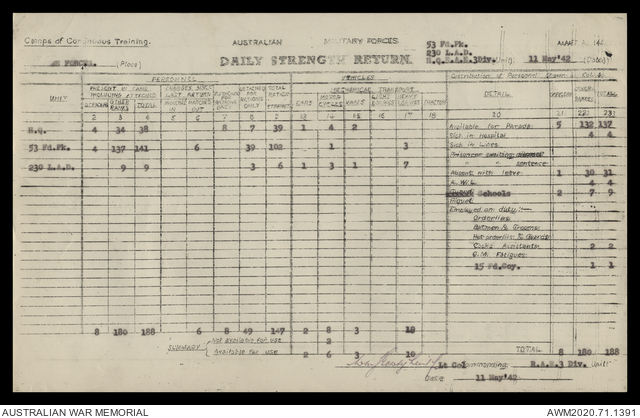 Camps of Continuous Training.
AUSTRALIAN MILITARY FORCES
53 Fd.Pk.
230 L.A.D.
FORCES. (Place)
DAILY STRENGTH RETURN.
H.Q.R.A.E.3Div. Unit: 11 May'42 (Date)
PERSONNEL
VEHICLES
Distribution of Personnel Shown in Col. 4.
UNIT
PRESENT IN CAMP INCLUDING ATTACHED
CHANGES SINCE LAST RETURN
MECHANICAL TRANSPORT
DETAIL
OTHER RANKS
TOTAL
MARCHED OUT
CARS
VANS
TRACTOR
2 3 4 5 6 7 8 9 10 13 14 15 16 17 18 20 21 22 23
H.Q. 4 34 38 8 7 39 1 4 2
Available for Parade 5 132 137
Sick in Hospital 4 4
53 Fd.Pk. 4 137 141 6 39 102 1 3
Sick in Lines
230 L.A.D. 9 9 3 6 1 3 1 7
" " sentence
Absent with leave 1 30 31
A.W.L. 4 4
Schools 2 7 9
Piquet
Employed on duty:-
Orderlies
Batmen & Grooms
Hut orderlies & Guards
Cooks Assistants 2 2
Q.M. Fatigues
15 Fd.Coy. 1 1
8 180 188 6 8 49 147 2 8 3 10
TOTAL 8 180 188
SUMMARY
Not available for use 2
Available for use 2 6 3 10
Lt Col Commanding. R.A.E.3 Div. Unit
Date 11 May'42
AUSTRALIAN WAR MEMORIAL
AWM2020.71.1391